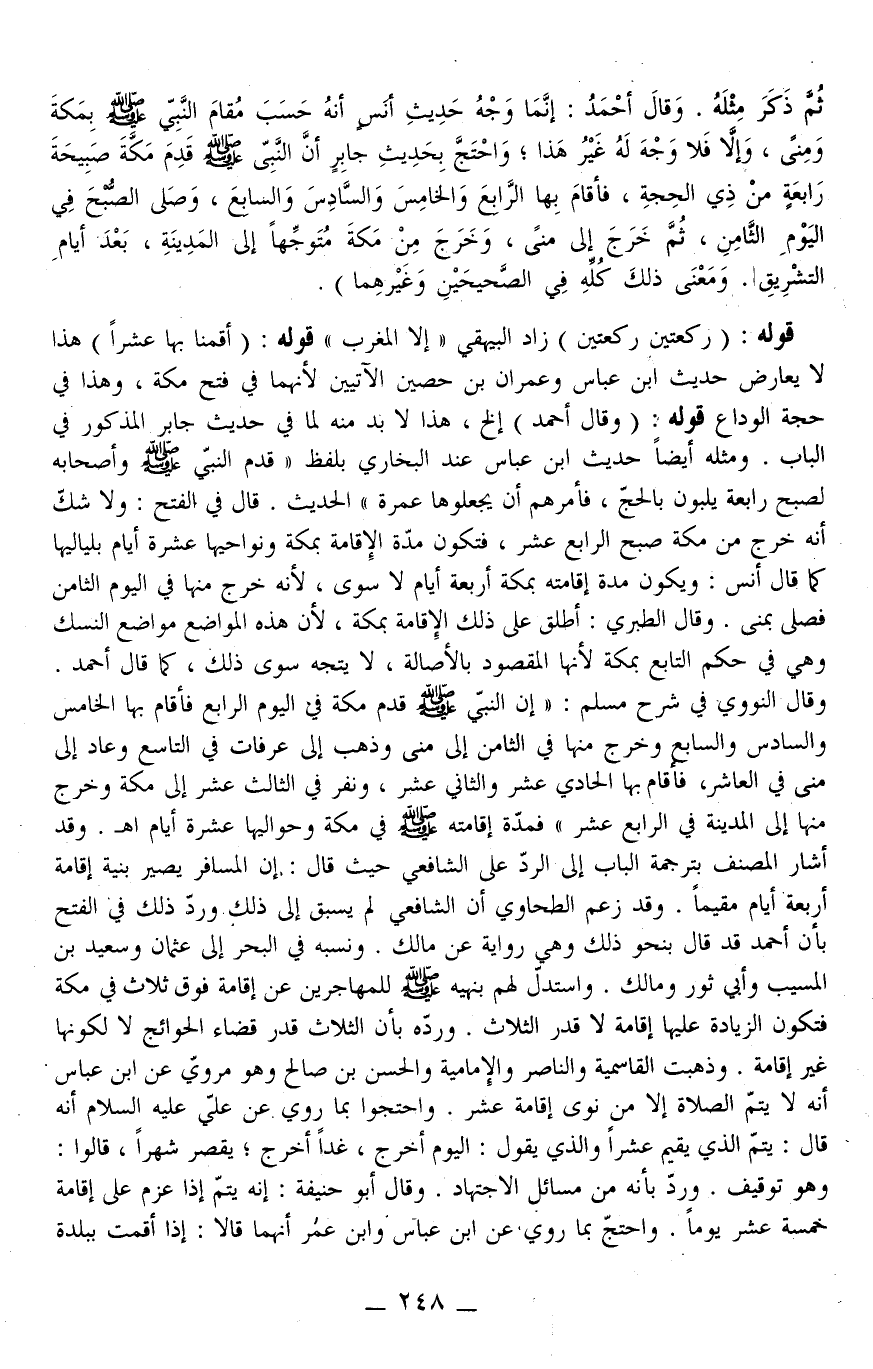 ثُمَّ ذَكَرَ مِثْلَهُ . وَقالَ أحْمَدُ : إنَّمَا وَجْهُ حَدِيثِ أنَسٍ أنهُ حَسَبَ مُقامَ النَّبِيّ ﷺ بِمَكةَ
وَمِنىً ، وَإلَّا فَلا وَجْهَ لَهُ غَيْرُ هَذا ؛ وَاحْتَجَّ بِحَدِيثِ جابِرٍ أنَّ النَّبِيّ ﷺ قَدِمَ مَكَّةَ صَبِيحَةَ
رَابعَةٍ منْ ذِي الحِجةِ ، فأقامَ بِها الرَّابِعَ وَالخامِسَ وَالسَّادِسَ وَالسابعَ ، وَصَلى الصُّبْحَ فِي
اليَوْمِ الثَّامِنِ ، ثُمَّ خَرَجَ إلى منىً ، وَخَرَجَ مِنْ مَكةَ مُتَوجِّهاً إلى المَدِينَةِ ، بَعْدَ أيام
التشْرِيقِ . وَمَعْنَى ذلكَ كُلِّهِ فِي الصَّحيحَيْنِ وَغَيْرِهِما ) .
قوله : ( ركعتين ركعتين ) زاد البيهقي « إلا المغرب » قوله : ( أقمنا بها عشراً ) هذا
لا يعارض حديث ابن عباس وعمران بن حصين الآتيين لأنهما في فتح مكة ، وهذا في
حجة الوداع قوله : ( وقال أحمد ) إلخ ، هذا لا بد منه لما في حديث جابر المذكور في
الباب . ومثله أيضاً حديث ابن عباس عند البخاري بلفظ « قدم النبيّ ﷺ وأصحابه
لصبح رابعة يلبون بالحجّ ، فأمرهم أن يجعلوها عمرة » الحديث . قال في الفتح : ولا شكّ
أنه خرج من مكة صبح الرابع عشر ، فتكون مدّة الإقامة بمكة ونواحيها عشرة أيام بلياليها
كما قال أنس : ويكون مدة إقامته بمكة أربعة أيام لا سوى ، لأنه خرج منها في اليوم الثامن
فصلى بمنى . وقال الطبري : أطلق على ذلك الإقامة بمكة ، لأن هذه المواضع مواضع النسك
وهي في حكم التابع بمكة لأنها المقصود بالأصالة ، لا يتجه سوى ذلك ، كما قال أحمد .
وقال النووي في شرح مسلم : « إن النبيّ ﷺ قدم مكة في اليوم الرابع فأقام بها الخامس
والسادس والسابع وخرج منها في الثامن إلى منى وذهب إلى عرفات في التاسع وعاد إلى
منى في العاشر، فأقام بها الحادي عشر والثاني عشر ، ونفر في الثالث عشر إلى مكة وخرج
منها إلى المدينة في الرابع عشر » فمدّة إقامته ﷺ في مكة وحواليها عشرة أيام اهـ . وقد
أشار المصنف بترجمة الباب إلى الردّ على الشافعي حيث قال : إن المسافر يصير بنية إقامة
أربعة أيام مقيماً . وقد زعم الطحاوي أن الشافعي لم يسبق إلى ذلك وردّ ذلك في الفتح
بأن أحمد قد قال بنحو ذلك وهي رواية عن مالك . ونسبه في البحر إلى عثمان وسعيد بن
المسيب وأبي ثور ومالك . واستدلّ لهم بنهيه ﷺ للمهاجرين عن إقامة فوق ثلاث في مكة
فتكون الزيادة عليها إقامة لا قدر الثلاث . وردّه بأن الثلاث قدر قضاء الحوائج لا لكونها
غير إقامة . وذهبت القاسمية والناصر والإمامية والحسن بن صالح وهو مرويّ عن ابن عباس
أنه لا يتمّ الصلاة إلا من نوى إقامة عشر . واحتجوا بما روي عن عليّ عليه السلام أنه
قال : يتمّ الذي يقيم عشراً والذي يقول : اليوم أخرج ، غداً أخرج ؛ يقصر شهراً ، قالوا :
وهو توقيف . وردّ بأنه من مسائل الاجتهاد . وقال أبو حنيفة : إنه يتمّ إذا عزم على إقامة
خمسة عشر يوماً . واحتجّ بما روي عن ابن عباس وابن عمُر أنهما قالا : إذا أقمت ببلدة
ــ ٢٤٨ ــ